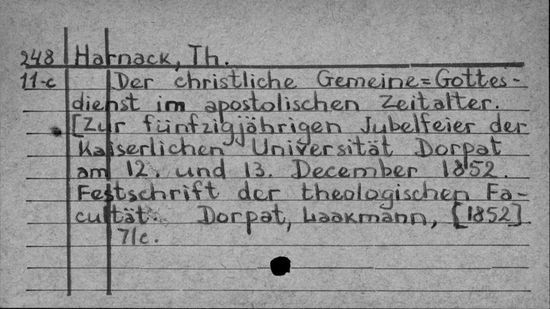 248 Harnack, Th.
11-c Der christliche Gemeine=Gottes-
dienst im apostolischen Zeitalter.
[Zur fünfzigjährigen Jubelfeier der
Kaiserlichen Universität Dorpat
am 12. und 13. December 1852.
Festschrift der theologischen Fa-
cultät. Dorpat, Laakmann, [1852]
71c.